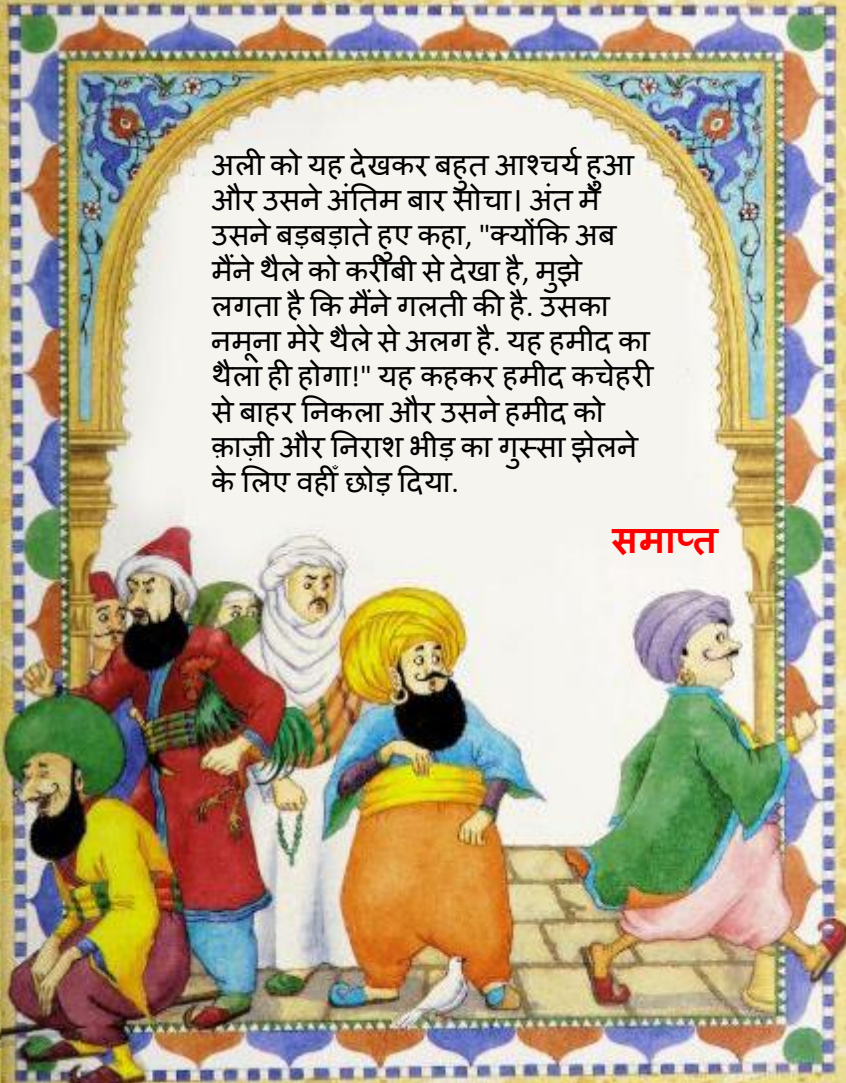 अली को यह देखकर बहुत आश्चर्य हुआ
और उसने अंतिम बार सोचा। अंत में
उसने बड़बड़ाते हुए कहा, "क्योंकि अब
मैंने थैले को करीबी से देखा है, मुझे
लगता है कि मैंने गलती की है. उसका
नमूना मेरे थैले से अलग है. यह हमीद का
थैला ही होगा!" यह कहकर हमीद कचेहरी
से बाहर निकला और उसने हमीद को
क़ाज़ी और निराश भीड़ का गुस्सा झेलने
के लिए वहीँ छोड़ दिया.
समाप्त